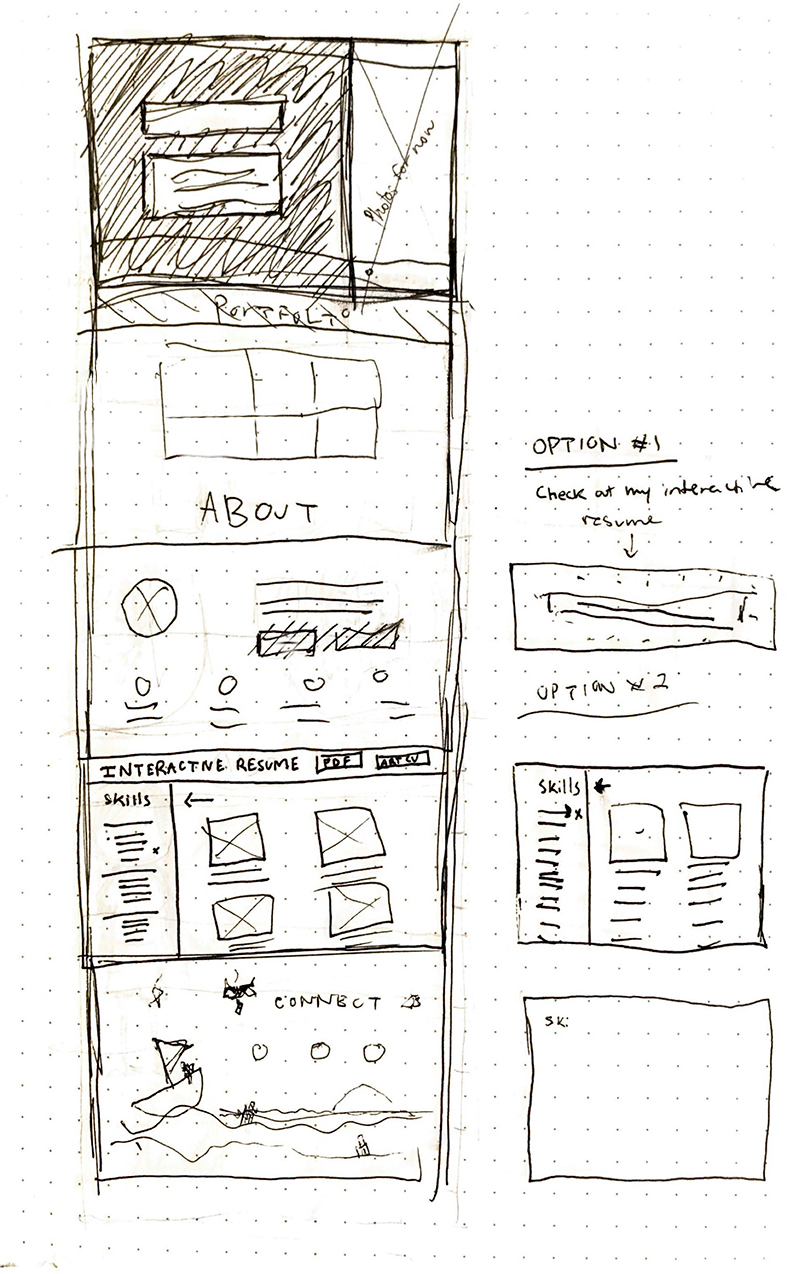 Photos for now
PORTFOLIO
ABOUT
INTERACTIVE RESUME PDF ART CV
Skills
CONNECT
OPTION #1
Check out my interactive
resume
OPTION #2
Skills
Ski